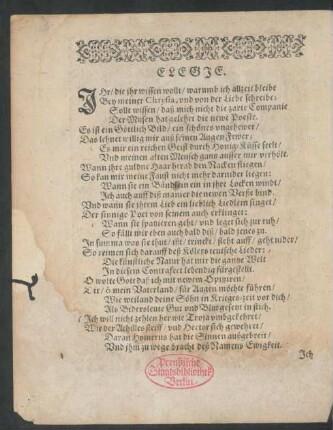 ELEGIE.
IHr/ die ihr wissen wollt/ warumb ich allzeit bleibe
Bey meiner Chrysilla, vnd von der Liebe schreibe:
Sollt wissen/ daß mich nicht die zarte Companie
Der Musen hat gelehret die newe Poesie.
Es ist ein Göttlich Bild/ ein schönes
Das lehret willig mir auß seinen Augen Fewer/
Es mir ein reichen Geist durch Honig-Küsse
Vnd meinen alten Mensch gantz ausser mir verhölt.
Wann ihre guldne Haar herab den Nacken fliegen/
So kan mir meine Faust nicht mehr darnider liegen:
Wann sie ein Bändlein ein in ihre Locken windt/
Ich auch auff diß manier die newen Verße bind.
Vnd wann sie ihrem Lieb ein lieblich Liedlein singet/
Der sinnige Poet von seinem auch erklinget:
Wann sie spatzieren geht/ vnd leget sich zur ruh/
So fällt mir eben auch bald diß/ bald jenes zu.
In summa was sie thut/ ißt/ trinckt/ steht auff/ geht nider/
So reimen sich darauff deß Kölers teutsche Lieder:
Die künstliche Natur hat mir die gantze Welt
In diesem Contrafeet lebendig fürgestellt.
O wolte Gott daß ich mit newem Opitziren
Dir/ ô mein Vaterland/ für Augen möchte führen/
Wie weiland deine Söhn in Krieges-zeit vor dich/
Als Biderleute Gut vnd Blut gesetzt in stich.
Ich will nicht zehlen her wie Troja vmbgekehret/
Wie der Achilles steiff/ vnd Hector sich gewehret/
Daran Homerus hat die Sinnen außgebreit/
Vnd ihm zu wege bracht deß Namens Ewigkeit.
Ich
Preußische
Staatsbibliothek
Berlin